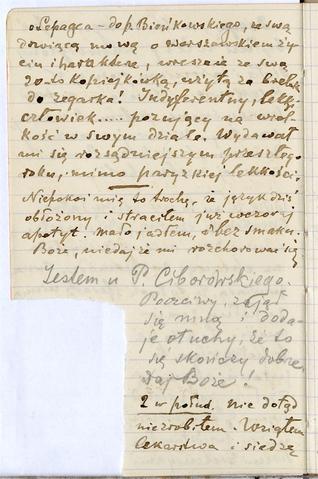 o Lepagea - do p. Bieńkowskiego, ze swą
drwiącą mową o warszawskiem ży-
ciu i charakterze, wreszcie ze swą
20-to kopiejkówką, użytą za brelok
do zegarka! Indyferentny, lekki
człowiek..... pozujący na wiel-
kość w swym dziale. Wydawał
mi się rozsądniejszym przeszłego
roku, mimo paryzkiej lekkości.
Niepokoi mię to trochę, że język dziś
obłożony i straciłem już wczoraj
apetyt. Mało jadłem, a bez smaku.
Boże, niedaj że mi rozchorować się
Jestem u P. Ciborowskiego.
Poczciwy, zajął
się mną i doda-
je otuchy, że to
się skończy dobrze.
Daj Boże!
2 w połud. nic dotąd
niezrobiłem. Wziąłem
lekarstwa i siedzę